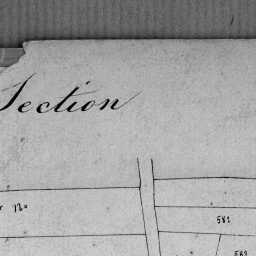 Section
No
581
582